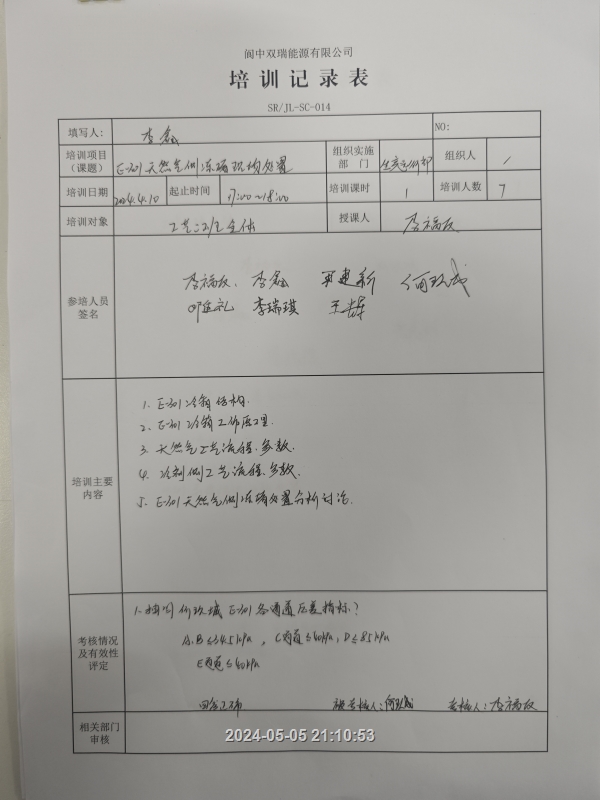 阆中双瑞能源有限公司
培训记录表
SR/JL-SC-014
填写人: 李鑫 NO:
培训项目（课题） E-301天然气侧冻堵现场处置 组织实施部门 生产运行部 组织人 /
培训日期 2024.4.10 起止时间 17:00~18:00 培训课时 1 培训人数 7
培训对象 工艺二班全体 授课人 李福友
参培人员签名
李福友、李鑫 何玖成
李瑞琪 王
培训主要内容
1. E-301冷箱结构.
2. E-301冷箱工作原理.
3. 天然气工艺流程、参数.
4. 冷剂侧工艺流程、参数.
5. E-301天然气侧冻堵处置分析讨论.
考核情况及有效性评定
1. 抽问何玖成 E-301各通道压差指标?
A.B≤345kPa, C通道≤40kPa, D≤85kPa
E通道≤40kPa
回答正确 被考核人:何玖成 考核人:李福友
相关部门审核
2024-05-05 21:10:53